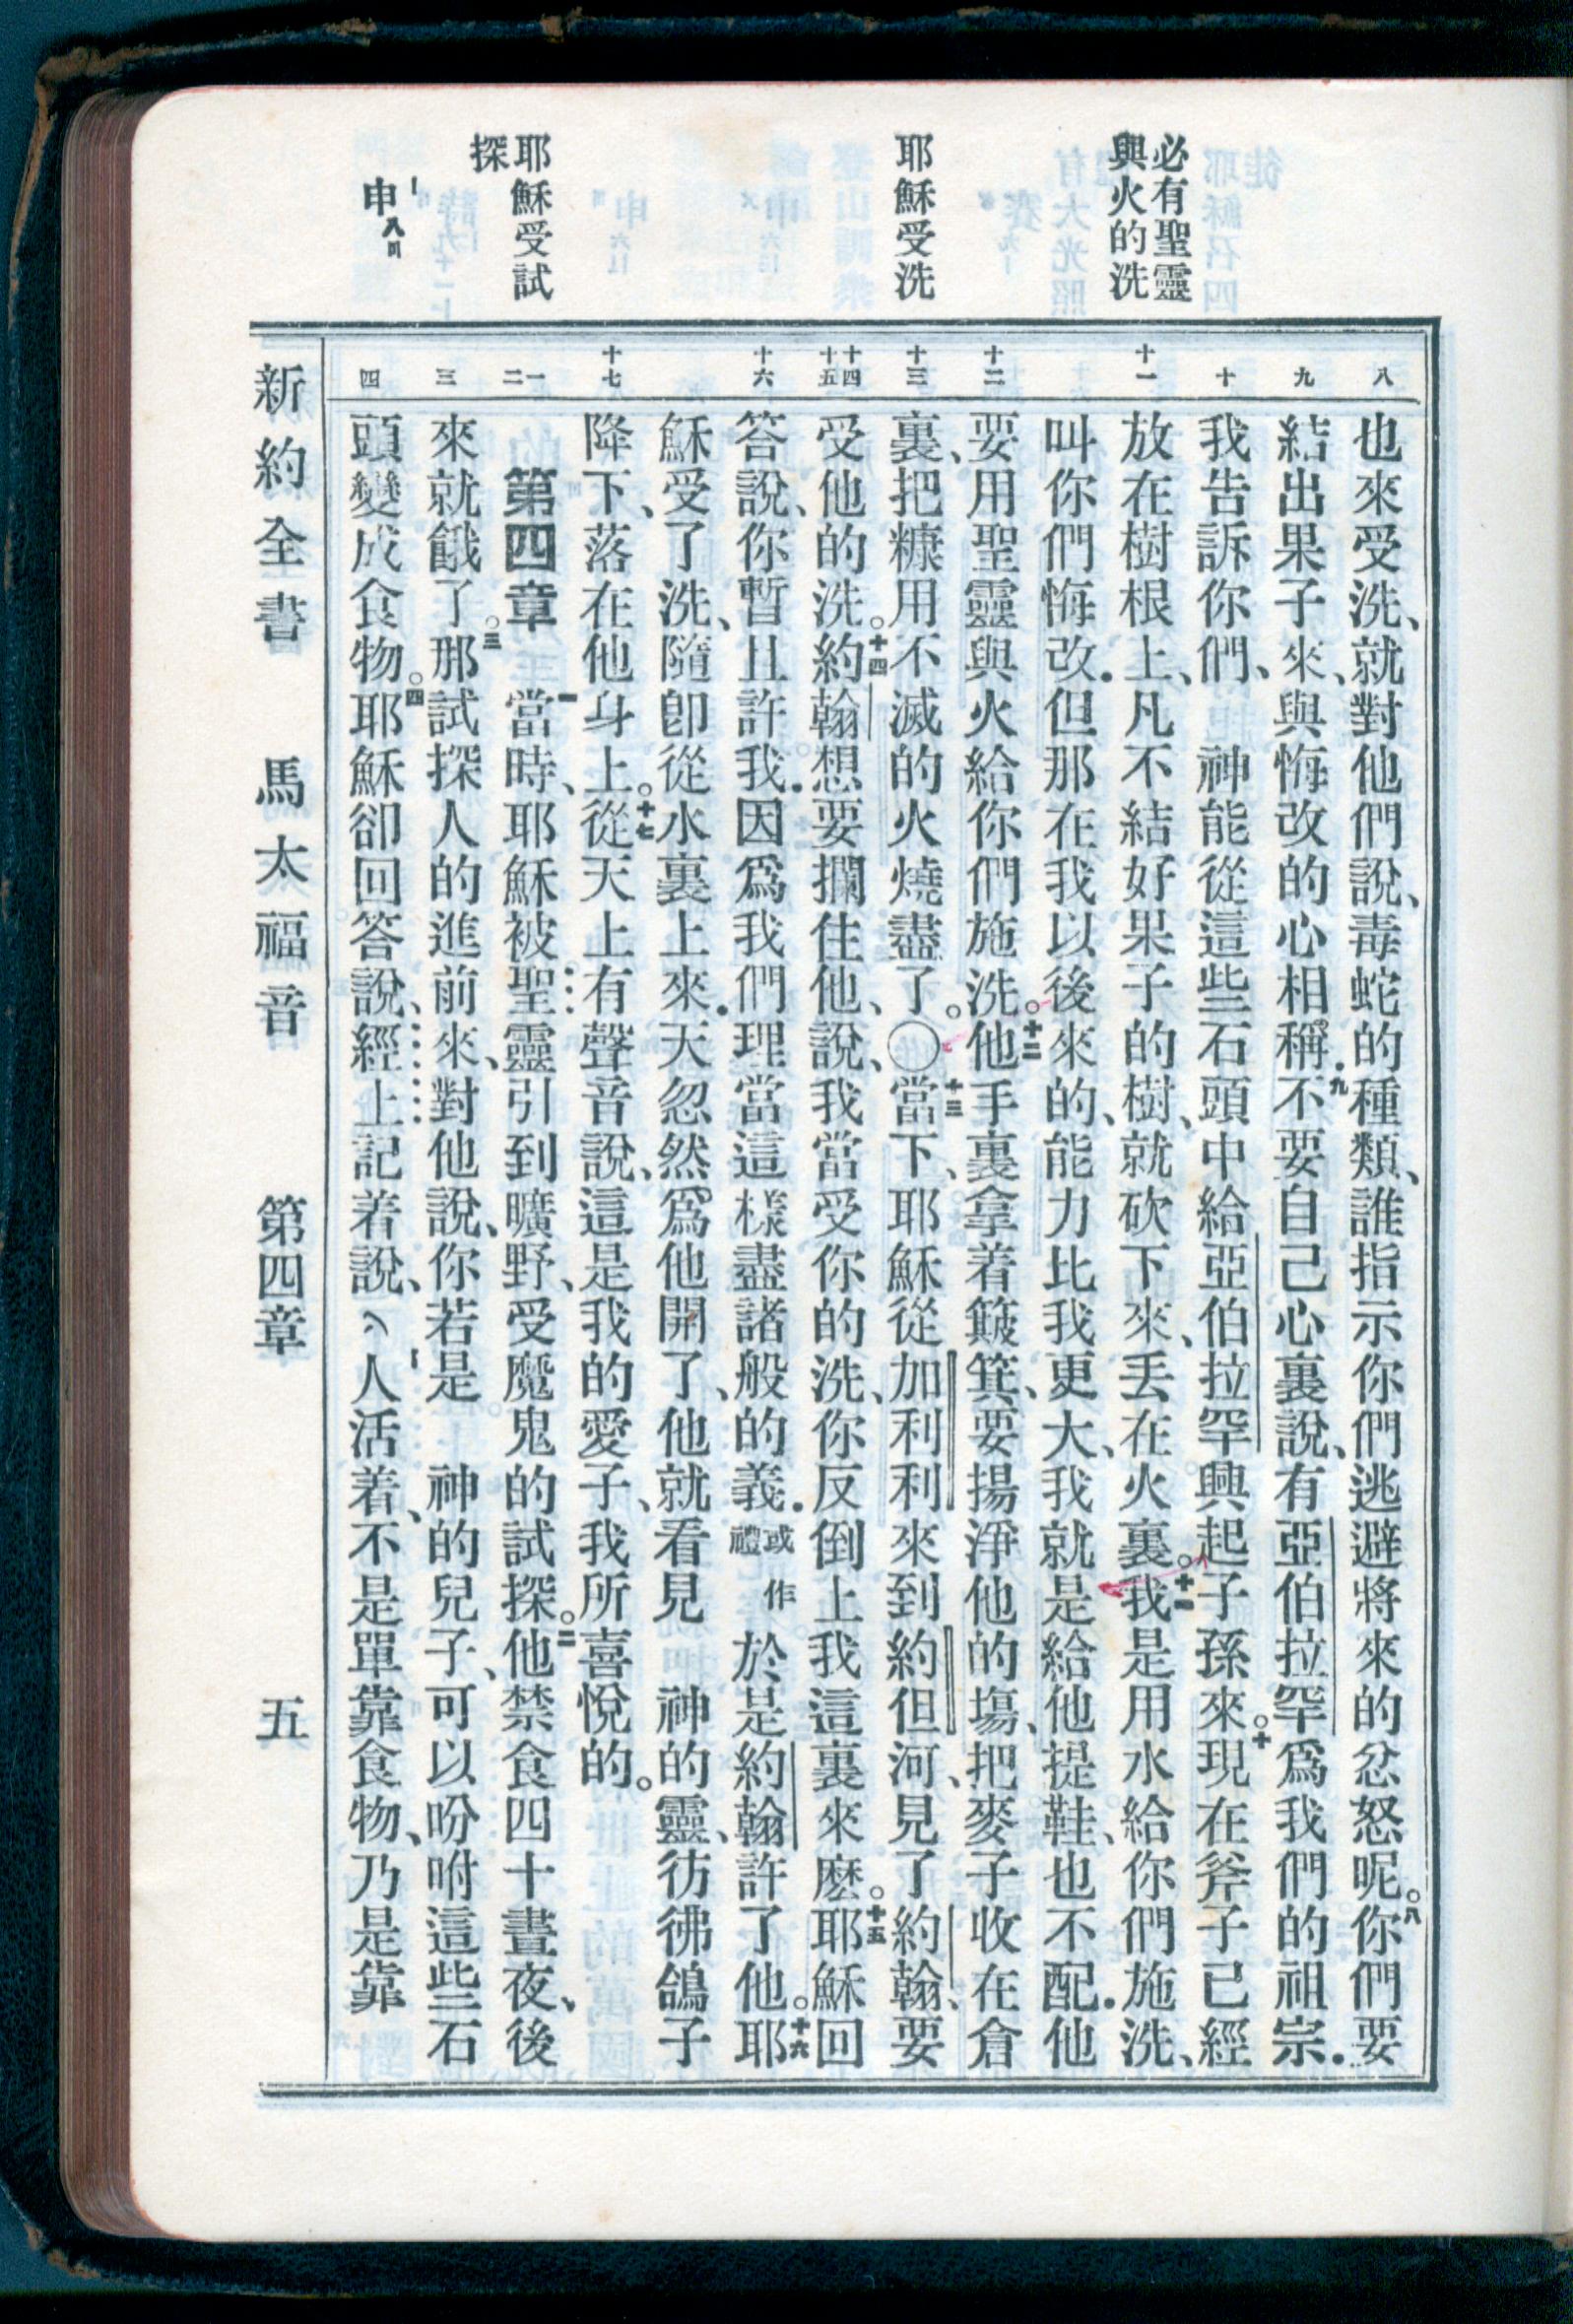 必有聖靈
與火的洗
耶穌受洗
耶穌受試
探
申八
八
九
十
十一
十二
十三
十四
十五
十六
十七
一
二
三
四
也來受洗、就對他們說、毒蛇的種類、誰指示你們逃避將來的忿怒呢。八你們要
結出果子來、與悔改的心相稱．九不要自己心裏說、有亞伯拉罕爲我們的祖宗．
我告訴你們、　神能從這些石頭中給亞伯拉罕興起子孫來。十現在斧子已經
放在樹根上、凡不結好果子的樹、就砍下來、丟在火裏。十一我是用水給你們施洗、
叫你們悔改．但那在我以後來的、能力比我更大、我就是給他提鞋、也不配．他
要用聖靈與火給你們施洗。十二他手裏拿着簸箕、要揚淨他的塲、把麥子收在倉
裏、把糠用不滅的火燒盡了。〇十三當下、耶穌從加利利來到約但河、見了約翰、要
受他的洗。十四約翰想要攔住他、說、我當受你的洗、你反倒上我這裏來麽。十五耶穌回
答說、你暫且許我．因爲我們理當這樣盡諸般的義．或作禮　於是約翰許了他。十六耶
穌受了洗、隨卽從水裏上來．天忽然爲他開了、他就看見　神的靈、彷彿鴿子
降下、落在他身上。十七從天上有聲音說、這是我的愛子、我所喜悅的。
第四章　一當時、耶穌被聖靈引到曠野、受魔鬼的試探。二他禁食四十晝夜、後
來就餓了。三那試探人的進前來、對他說、你若是　神的兒子、可以吩咐這些石
頭變成食物。四耶穌卻回答說、經上記着說、人活着、不是單靠食物、乃是靠
新約全書　馬太福音　第四章　五